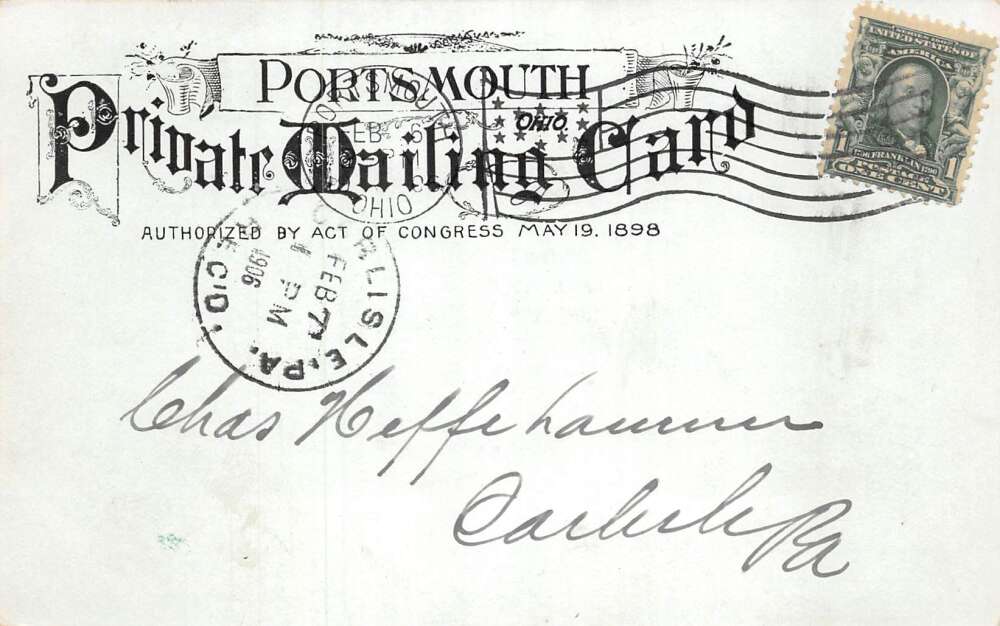 PORTSMOUTH
Private Mailing Card
AUTHORIZED BY ACT OF CONGRESS MAY 19, 1898
PORTSMOUTH
FEB
OHIO
OHIO
UNITED STATES OF
AMERICA
FRANKLIN 1790
POSTAGE
1 ONE CENT 1
CARLISLE, PA.
FEB 7
1 PM
1906
REC'D.
Chas Heffelhammer
Carlisle Pa